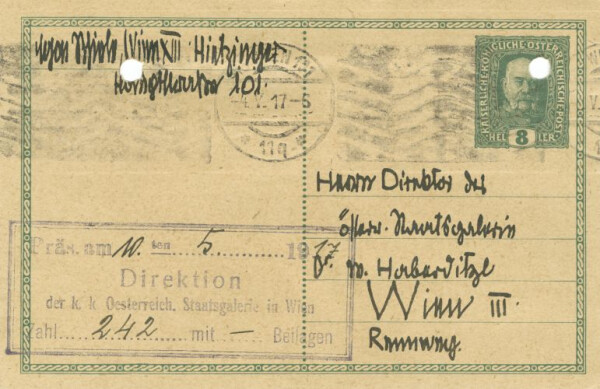 Egon Schiele, Wien XIII Hietzinger
Hauptstrasse 101.
4.V.17-6
KAISERLICHE KÖNIGLICHE ÖSTERREICHISCHE POST
HELLER
8
Herrn Direktor der
Österr. Staatsgalerie
Dr. W. Haberditzl
Wien III.
Rennweg.
Präs. am 10. ten 5 1917
Direktion
der k. k. Oesterreich. Staatsgalerie in Wien
Zahl 242 mit — Beilagen